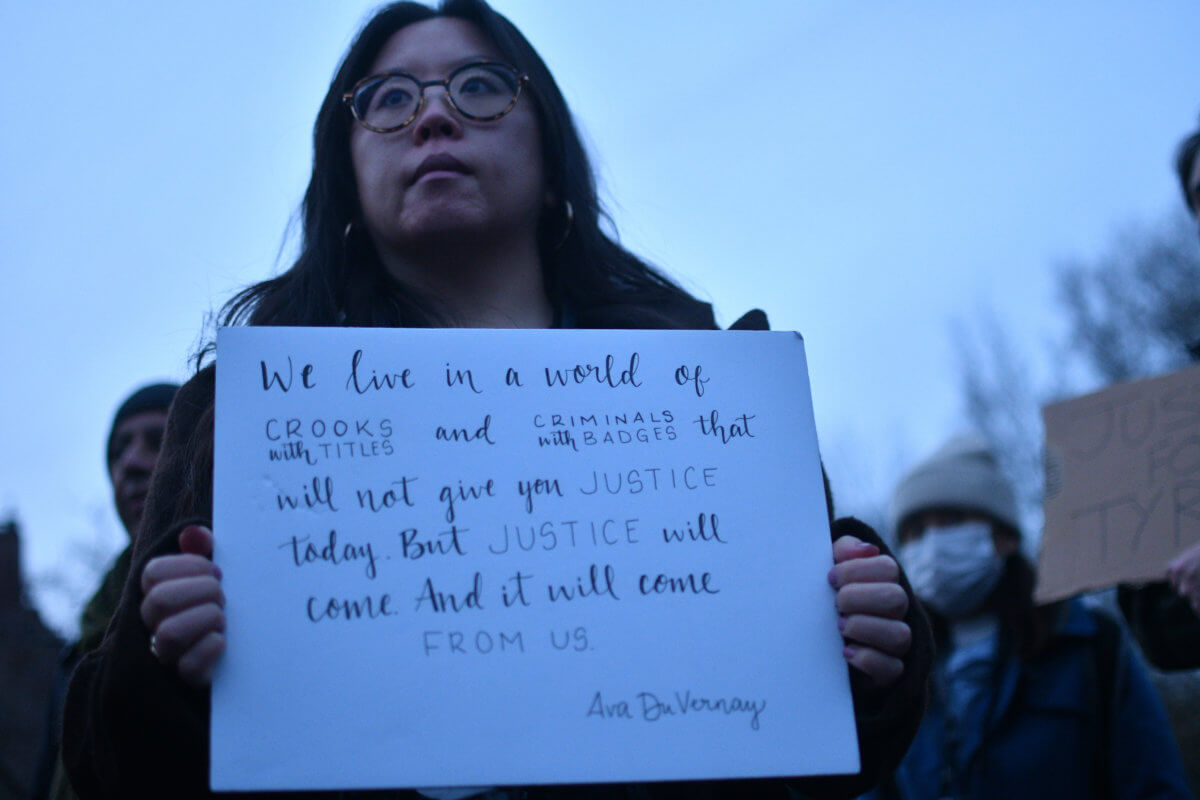 We live in a world of
CROOKS with TITLES and CRIMINALS with BADGES that
will not give you JUSTICE
today. But JUSTICE will
come. And it will come
FROM US.
Ava DuVernay
JUS
FO
TYR